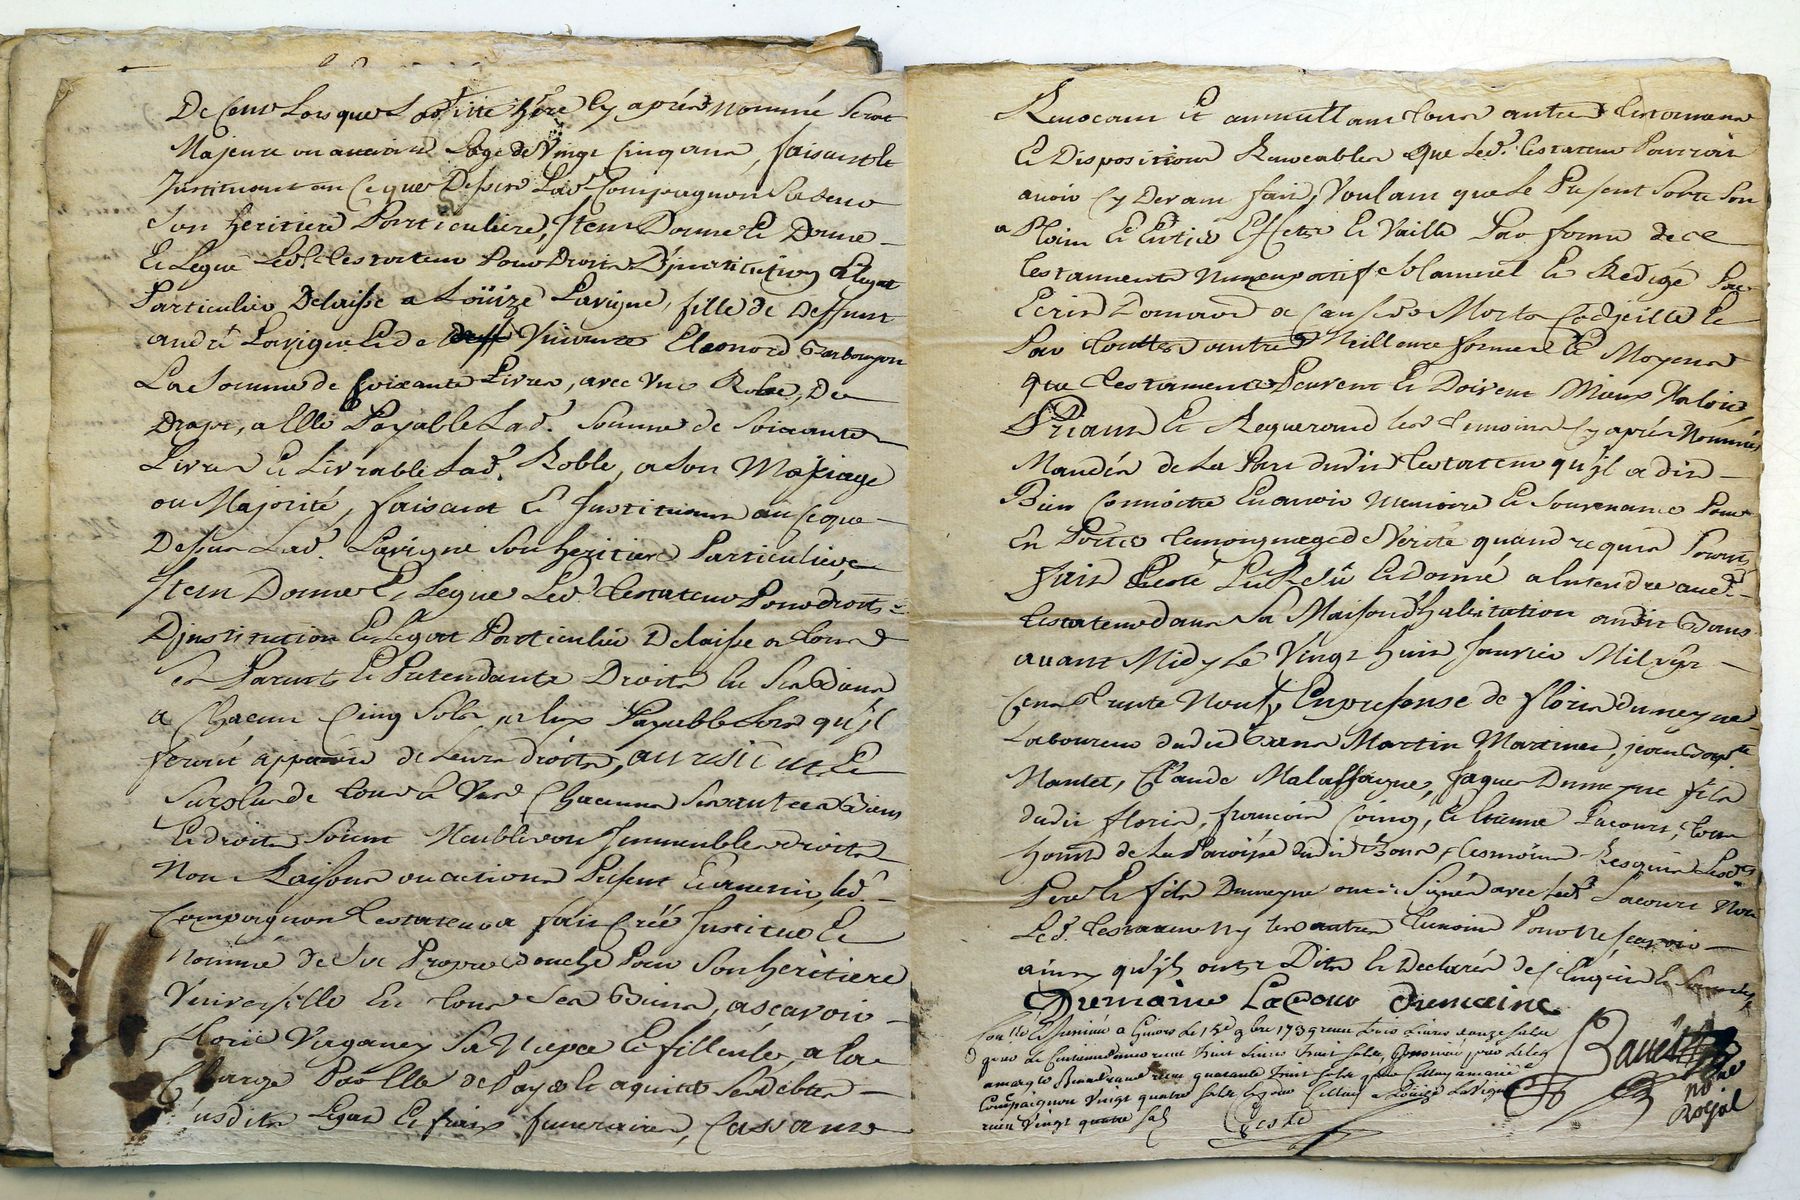 De Cens Lors que Lad. heritiere Cy après nommé Sera
Majeure ou auroit Lage de Vingt Cinq ans, faisant et
Instituant au Ce que Dessus Lad. Compagnon Sa
Son heritiere Particuliere, Item Donne et Donne
Et Legue Led. testateur Pour Droit D'institution et legat
Particulier Delaisse a Loüize Lavigne, fille de Deffunt
andré Lavigne et de Vivante Eleonord
La Somme de soixante Livres, avec Une Robe, De
Drapt, a Elle Payable Lad. Somme de Soixante
Livres et Livrable Lad. Robbe, a Son Mariage
ou Majorité, faisant et Instituant au Ce que
Dessus Lad. Lavigne Son heritiere Particuliere
Item Donne et Legue Led. testateur Pour droit
D'institution et Legat Particulier Delaisse a tous
Ses Parents et Pretendants Droits En Ses Biens
a Chacun Cinq Sols, a Eux Payable Lors qu'jl
feront apparoir de Leurs droits, au reste et Le
Surplus de tous et Uns Chacuns Ses autres Biens
Et droits Soient Meubles ou Immeubles droits
Nom Raisons ou actions Present et avenir, led.
Compagnon testateur a fait Créé Institué et
Nommé de Sa Propre Bouche Pour Son heritiere
Universelle En tous Ses Biens, ascavoir
florie Sa Niepce et filleule, a la
Charge Par Elle de Payer et aquitter Ses debtes
Susdits Legats et fraix funeraires, Cassant
Revocant Et annullant tous autres testaments
Et Dispositions Revocables Que Led. testateur Pourroit
avoir Cy Devant fait, Voulant que Le Present Sorte Son
Plein Et Entier Effet Et Vaille Par forme de
testaments Nuncupatif Solannel Et Redigé Par
Ecrit Donnaon a Cause de Mort Codicille Et
Par touttes autres Meilleures formes Et Moyens
Que testaments Peuvent Et Doivent Mieux Valoir,
Priant Et Requerant les temoins Cy après Nommés
Mandés de La Part dudit testateur qu'jl a dit
Bien Connoitre En avoir Memoire Et Souvenance Pour
En Porter temoignage de Verité quand requis
fait Leu Relû Et donné a Entendre aud.
testateur dans Sa Maison d'habitation audit Bans
avant Midy Le Vingt huit Janvier Mil Sept
Cens trente Neuf, En presense de floris dumeyne
Laboureur dudit Bans Martin Martinet, jean Bapte
Nantet, Claude Malassagne, Jaques Dumeyne fils
dudit floris, françois Coing, Et Etienne Lacour, tous
habts de La Paroisse dudit Bans, temoins Requis Lesds
Pere Et fils Dumeyne ont Signés avec Led. Lacour Non
Led. testateur Ny Les autres temoins Pour Ne Scavoir
ainsy qu'jls ont Dits Et Declarés de Enquis Et Sommés
Dumaine Lacour dumaine
Controllé a Givors Le 15e 9bre 1739 receu trois Livres douze Sols
receu huit Livres huit Sols, Insinué
receu quarante huit Sols
Compaignon Vingt quatre Sols a Loüize Lavigne
receu Vingt quatre Sols
no.re
Royal